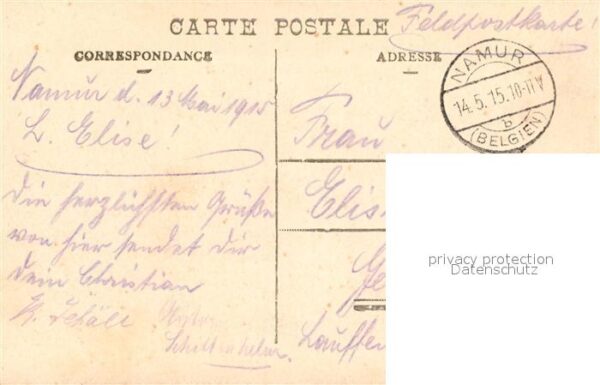 CARTE POSTALE
Feldpostkarte!
CORRESPONDANCE
ADRESSE
NAMUR
14.5.15.10-11V
b
(BELGIEN)
Namur d. 13 Mai 1915
L. Elise!
Die herzlichsten Grüße
von hier sendet Dir
Dein Christian
Frau
Elis
Lauffen
privacy protection
Datenschutz